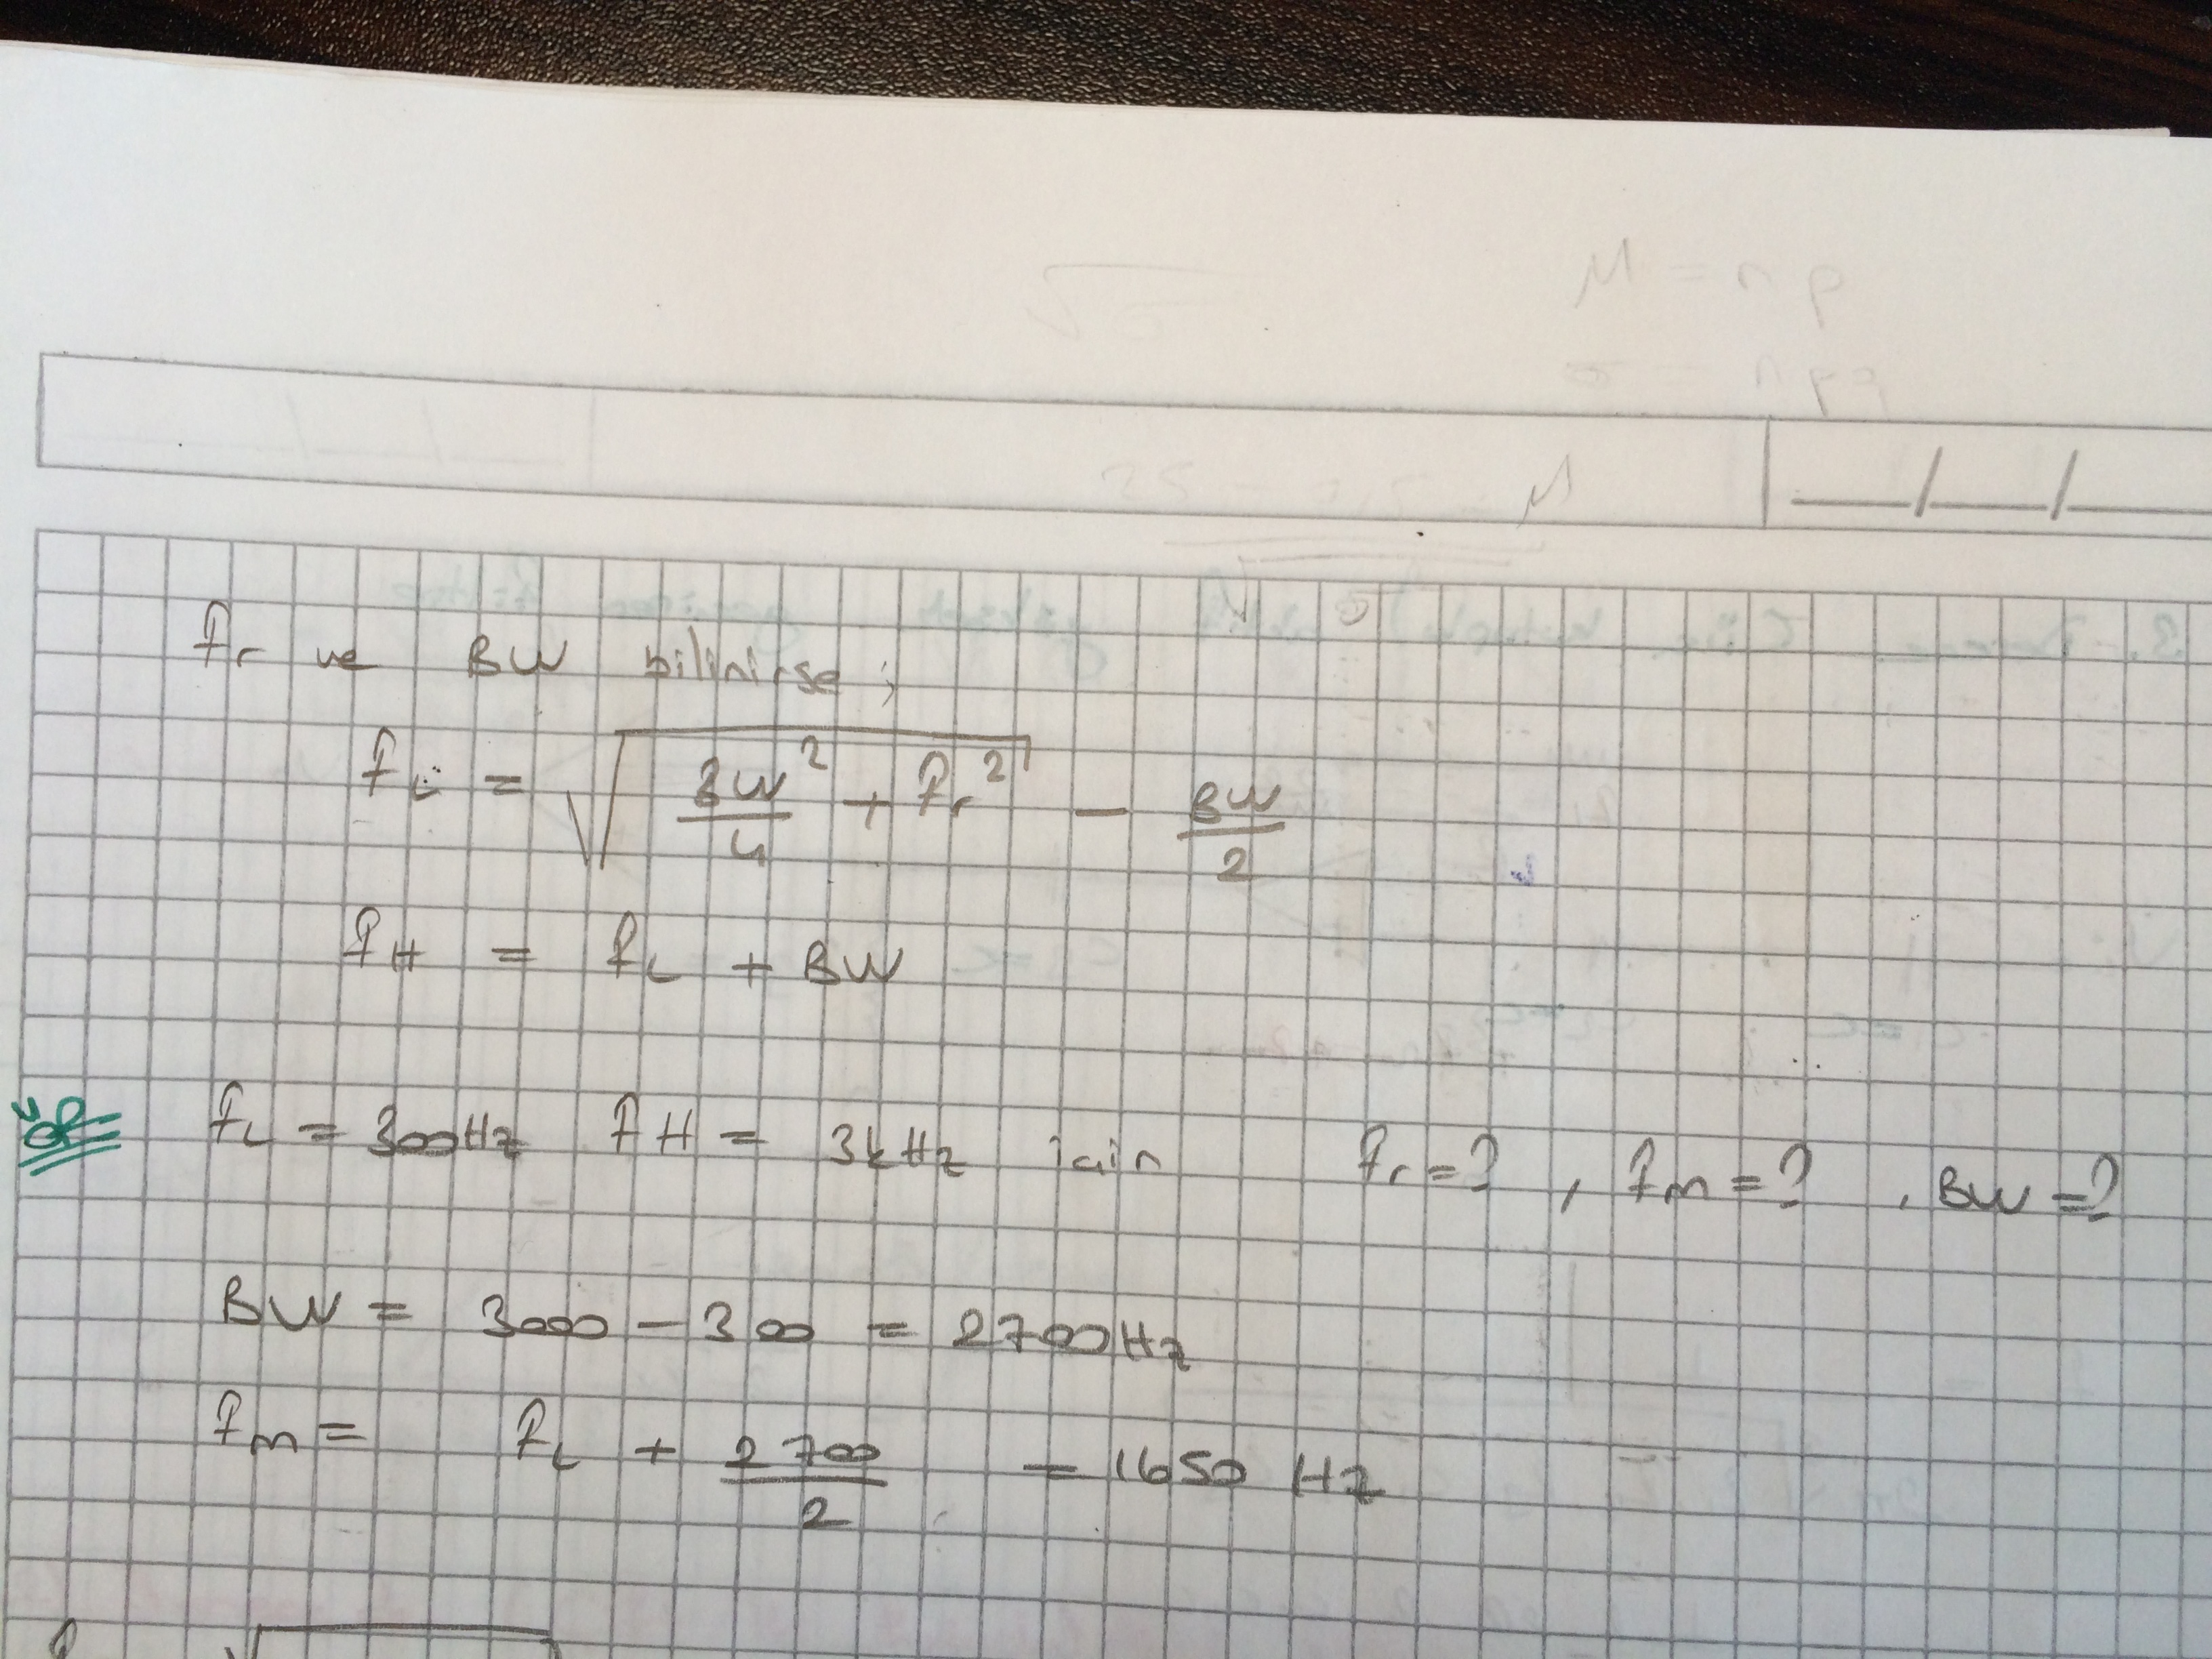 fr ve BW bilinirse;
fL = √(BW²/4 + fr²) - BW/2
fH = fL + BW
ÖR fL = 300Hz fH = 3kHz için fr = ? , fm = ? , BW = ?
BW = 3000 - 300 = 2700Hz
fm = fL + 2700/2 = 1650 Hz